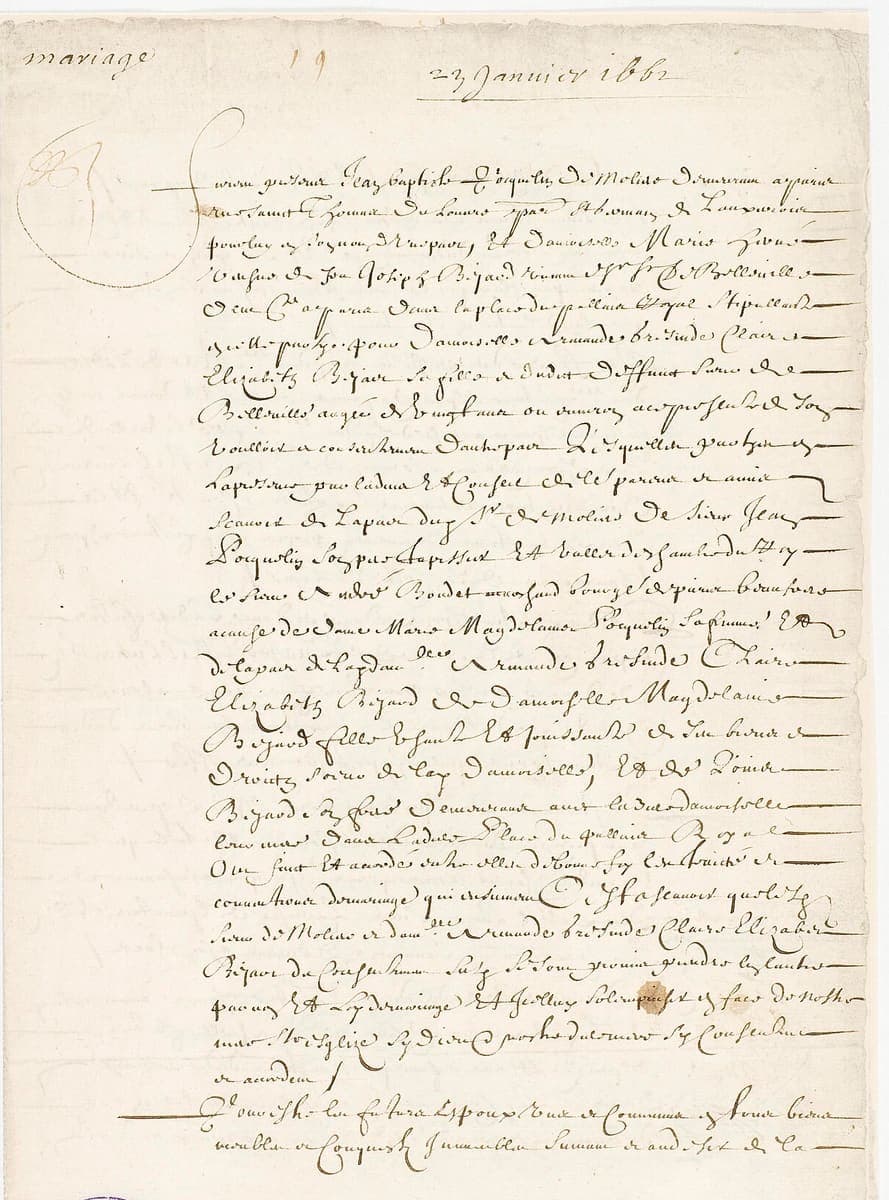 mariage
19
23 Janvier 1662
Furent presens Jean baptiste Pocquelin De Moliere demeurant a paris
rue saint Thomas Du Louvre parr St Germain de Lauxerrois
pour luy en son nom d'une part, Et damoiselle Marie hervé
veufve de feu Joseph Bejard vivant escuier sr De Belleville
demte a paris dans la place du pallais Royal stipullante
en cette partye pour Damoiselle Armande Gresinde Claire
Elizabeth Bejard sa fille et dudit deffunt sieur de
Belleville aagée de vingt ans ou environ a ce presente de son
voulloir et consentement d'autre part Lesquelles partyes en
la presence par l'advis Et Conseil de leurs parens et amis
scavoir de la part dud sr de Moliere de sieur Jean
Pocquelin son pere tapissier Et vallet de chambre du Roy
le sieur André Boudet marchand bourgs de paris beau frere
a cause de dame Marie Magdelaine Pocquelin sa femme, Et
de la part de lad damlle Armande Gresinde Claire
Elizabeth Bejard de Damoiselle Magdelaine
Bejard fille usante Et jouissante de ses biens et
droicts soeur de lad Damoiselle, Et de Louis
Bejard son frere demeurans avec lad damoiselle
leur mere dans ladite Place du pallais Royal
Ont faict Et accordé entre elles de bonne foy les traicté et
conventions de mariage qui ensuivent C'est a scavoir que lesd
sieur de Moliere et damlle Armande Gresinde Claire Elizabeth
Bejard du Consentement susd se sont promis prendre l'un l'autre
par nom Et loy de mariage Et Icelluy solempniser en face de nostre
mere Ste esglize sy dieu et nostredite mere sy Consentent
et accordent /
Pour estre les futurs Espoux uns et Communs en tous biens
meubles et Conquests Immeubles suivant et au desir de la